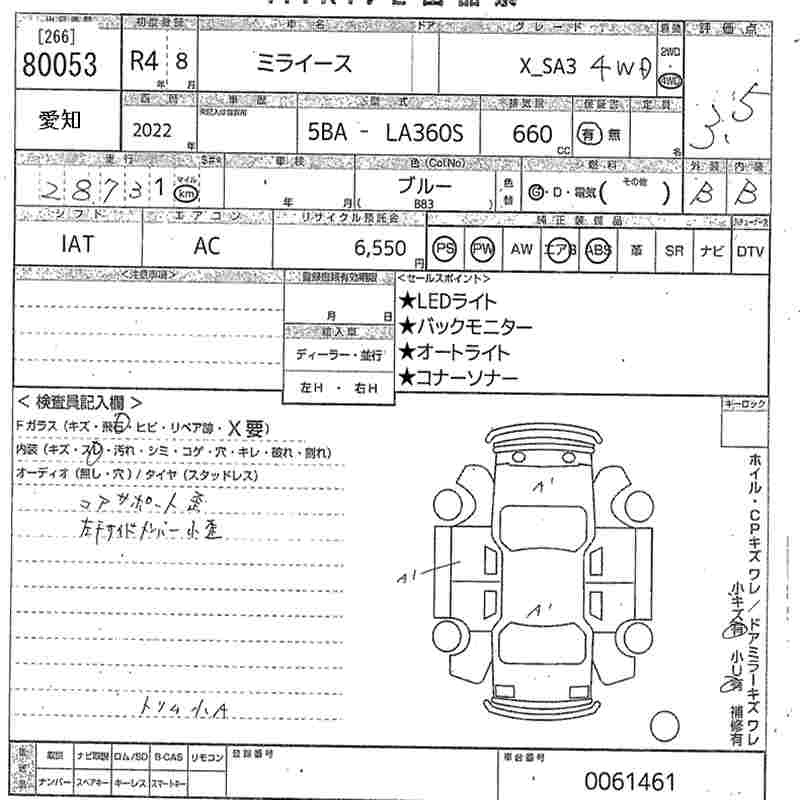 [266]
80053
初度登録
R4 8
年 月
車名 ドア
ミライース
グレード
X_SA3 4WD
2WD
・
4WD
評価点
3.5
愛知
2022
年
車歴
型式
5BA - LA360S
排気量
660
CC
保証書
有 無
定員
名
走行
28731
マイル
km
車検
年 月
色(Col No)
ブルー
( B83 )
色替
燃料
G・D・電気( その他 )
外装
B
内装
B
シフト
IAT
エアコン
AC
リサイクル預託金
6,550
円
純正装備品
PS PW AW エアB ABS 革 SR ナビ DTV
<注意事項>
登録書類有効期限
月 日
輸入車
ディーラー・並行
左H ・ 右H
<セールスポイント>
★LEDライト
★バックモニター
★オートライト
★コナーソナー
<検査員記入欄>
Fガラス(キズ・飛石・ヒビ・リペア跡・X要)
内装(キズ・スレ・汚れ・シミ・コゲ・穴・キレ・破れ・割れ)
オーディオ(無し・穴)/タイヤ(スタッドレス)
コアサポート歪
左右サイドメンバー小歪
トリム小A
キーロック
A1
A1
A1
ホイル・CPキズワレ/ドアミラーキズワレ
小キズ有 小U有 補修有
取説 ナビ取説 ロム/SD B-CAS リモコン
ナンバー スペアキー キーレス スマートキー
登録番号
車台番号
0061461